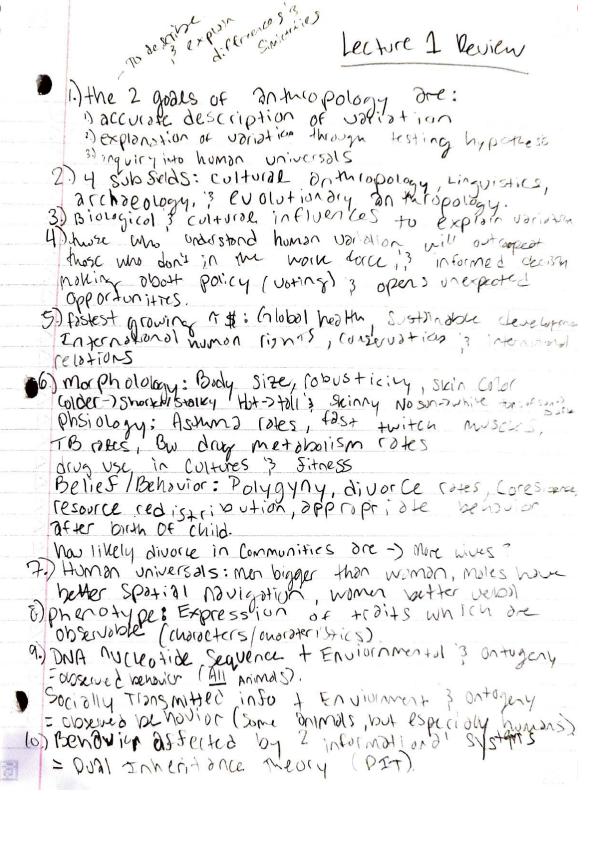 - To describe
& explain
differences &
similarities
Lecture 1 Review
1.) the 2 goals of anthropology are:
1) accurate description of variation
2) explanation of variation through testing hypothesis
3) inquiry into human universals
2.) 4 subfields: cultural anthropology, Linguistics,
archaeology, & evolutionary anthropology.
3.) Biological & cultural influences to explain variation
4.) those who understand human variation will outcompet
those who don't in the work force, & informed decision
making abott policy (voting) & opens unexpected
opportunities.
5.) fastest growing $: Global health, sustainable development
International human rights, conservation & international
relations
6.) morphology: Body size, robusticity, skin color
Colder -> short/stalky Hot -> tall & skinny No sun -> white
Phsiology: Asthma rates, fast twitch muscles,
TB rates, drug metabolism rates
drug use in cultures & fitness
Belief/Behavior: Polygyny, divorce rates,
resource redistribution, appropriate behavior
after birth of child.
how likely divorce in communities are -> more wives?
7.) Human universals: men bigger than woman, males have
better spatial navigation, women better verbal
8.) phenotype: Expression of traits which are
observable (characters/charateristics)
9.) DNA nucleotide sequence + Enviornmental & ontogeny
= observed behavior (All animals).
Socially Transmitted info + Enviornment & ontogeny
= observed behavior (some animals, but especially humans)
10.) Behavior affected by 2 informational systems
= Dual Inheritance Theory (DIT).